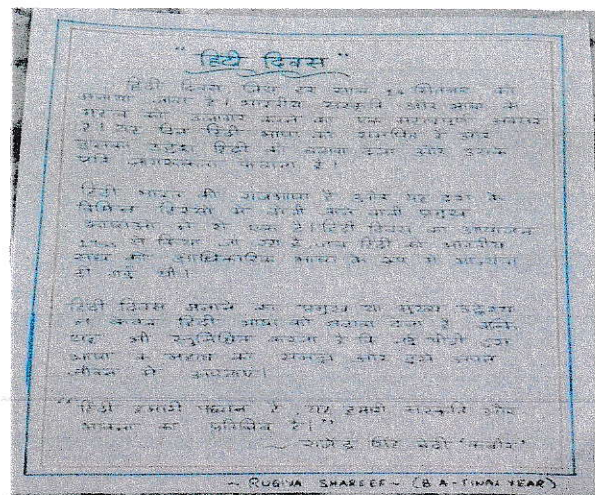 " हिंदी दिवस "
हिंदी दिवस जिसे हर साल 14 सितंबर को
मनाया जाता है। भारतीय संस्कृति और भाषा के
महत्व को उजागर करने का एक महत्वपूर्ण अवसर
है। यह दिन हिंदी भाषा को समर्पित है और
इसका उद्देश्य हिंदी को बढ़ावा देना और उसके
प्रति जागरूकता फैलाना है।
हिंदी भारत की राजभाषा है और यह देश के
विभिन्न हिस्सों में बोली जाने वाली प्रमुख
भाषाओं में से एक है। हिंदी दिवस का आयोजन
से किया जा रहा है, जब हिंदी को भारतीय
संघ की आधिकारिक भाषा के रूप में मान्यता
दी गई थी।
हिंदी दिवस मनाने का प्रमुख या मुख्य उद्देश्य
न केवल हिंदी भाषा को बढ़ावा देना है, बल्कि
यह भी सुनिश्चित करना है कि नई पीढ़ी इस
भाषा के महत्व को समझे और इसे अपने
जीवन में अपनाए।
"हिंदी हमारी पहचान है, यह हमारी संस्कृति और
भावना का प्रतिबिंब है।"
~ राजेन्द्र सिंह बेदी
~ RUQIYA SHAREEF ~ (B.A - FINAL YEAR)